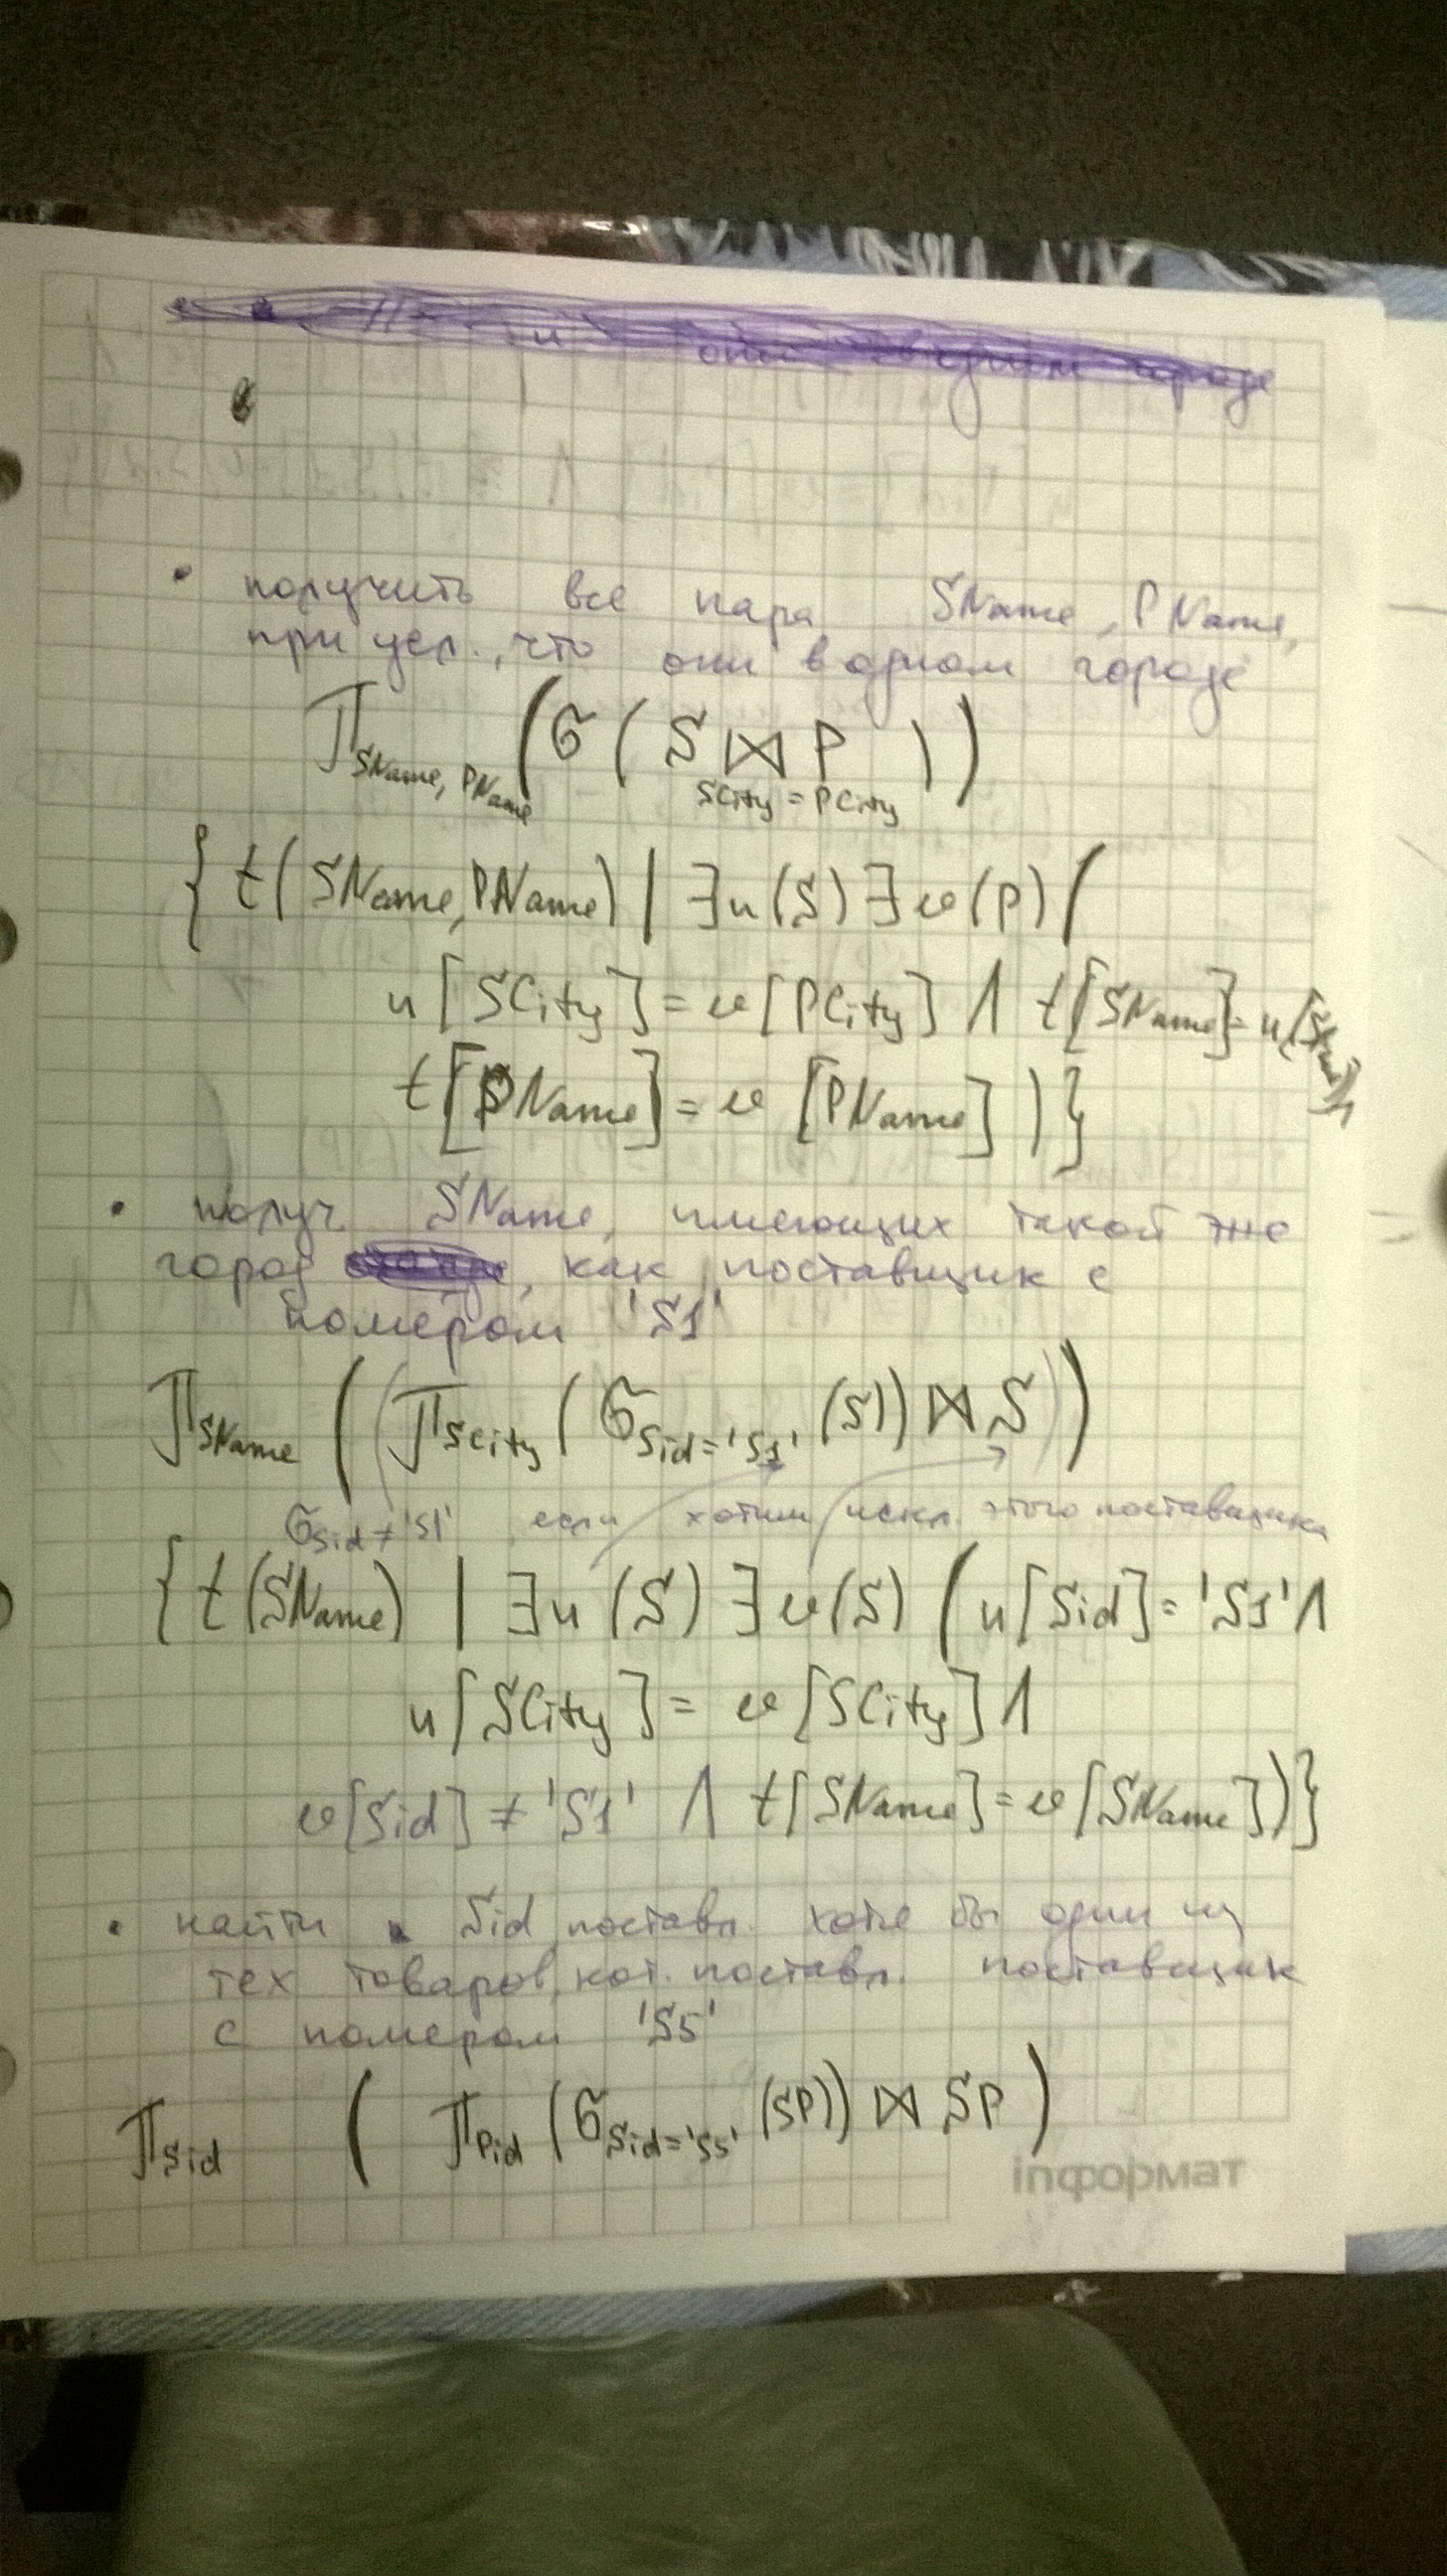 они в одном городе
• получить все пара SName, PName,
при усл., что они в одном городе
π SName, PName (σ ( S ⋈ P ))
SCity = PCity
{ t(SName, PName) | ∃u(S) ∃v(P) (
u[SCity] = v[PCity] ∧ t[SName] = u[SName] ∧
t[PName] = v [PName] ) }
• получ. SName, имеющих такой же
город, как поставщик с
номером 'S1'
π SName ( ( π SCity ( σ Sid = 'S1' (S)) ⋈ S ) )
σ Sid ≠ 'S1' если хотим искл. этого поставщика
{ t (SName) | ∃u (S) ∃v(S) ( u[Sid] = 'S1' ∧
u[SCity] = v[SCity] ∧
v[Sid] ≠ 'S1' ∧ t[SName] = v[SName] ) }
• найти Sid, поставл. хотя бы один из
тех товаров, кот. поставл. поставщик
с номером 'S5'
π Sid ( π Pid (σ Sid = 'S5' (SP)) ⋈ SP )
inформат